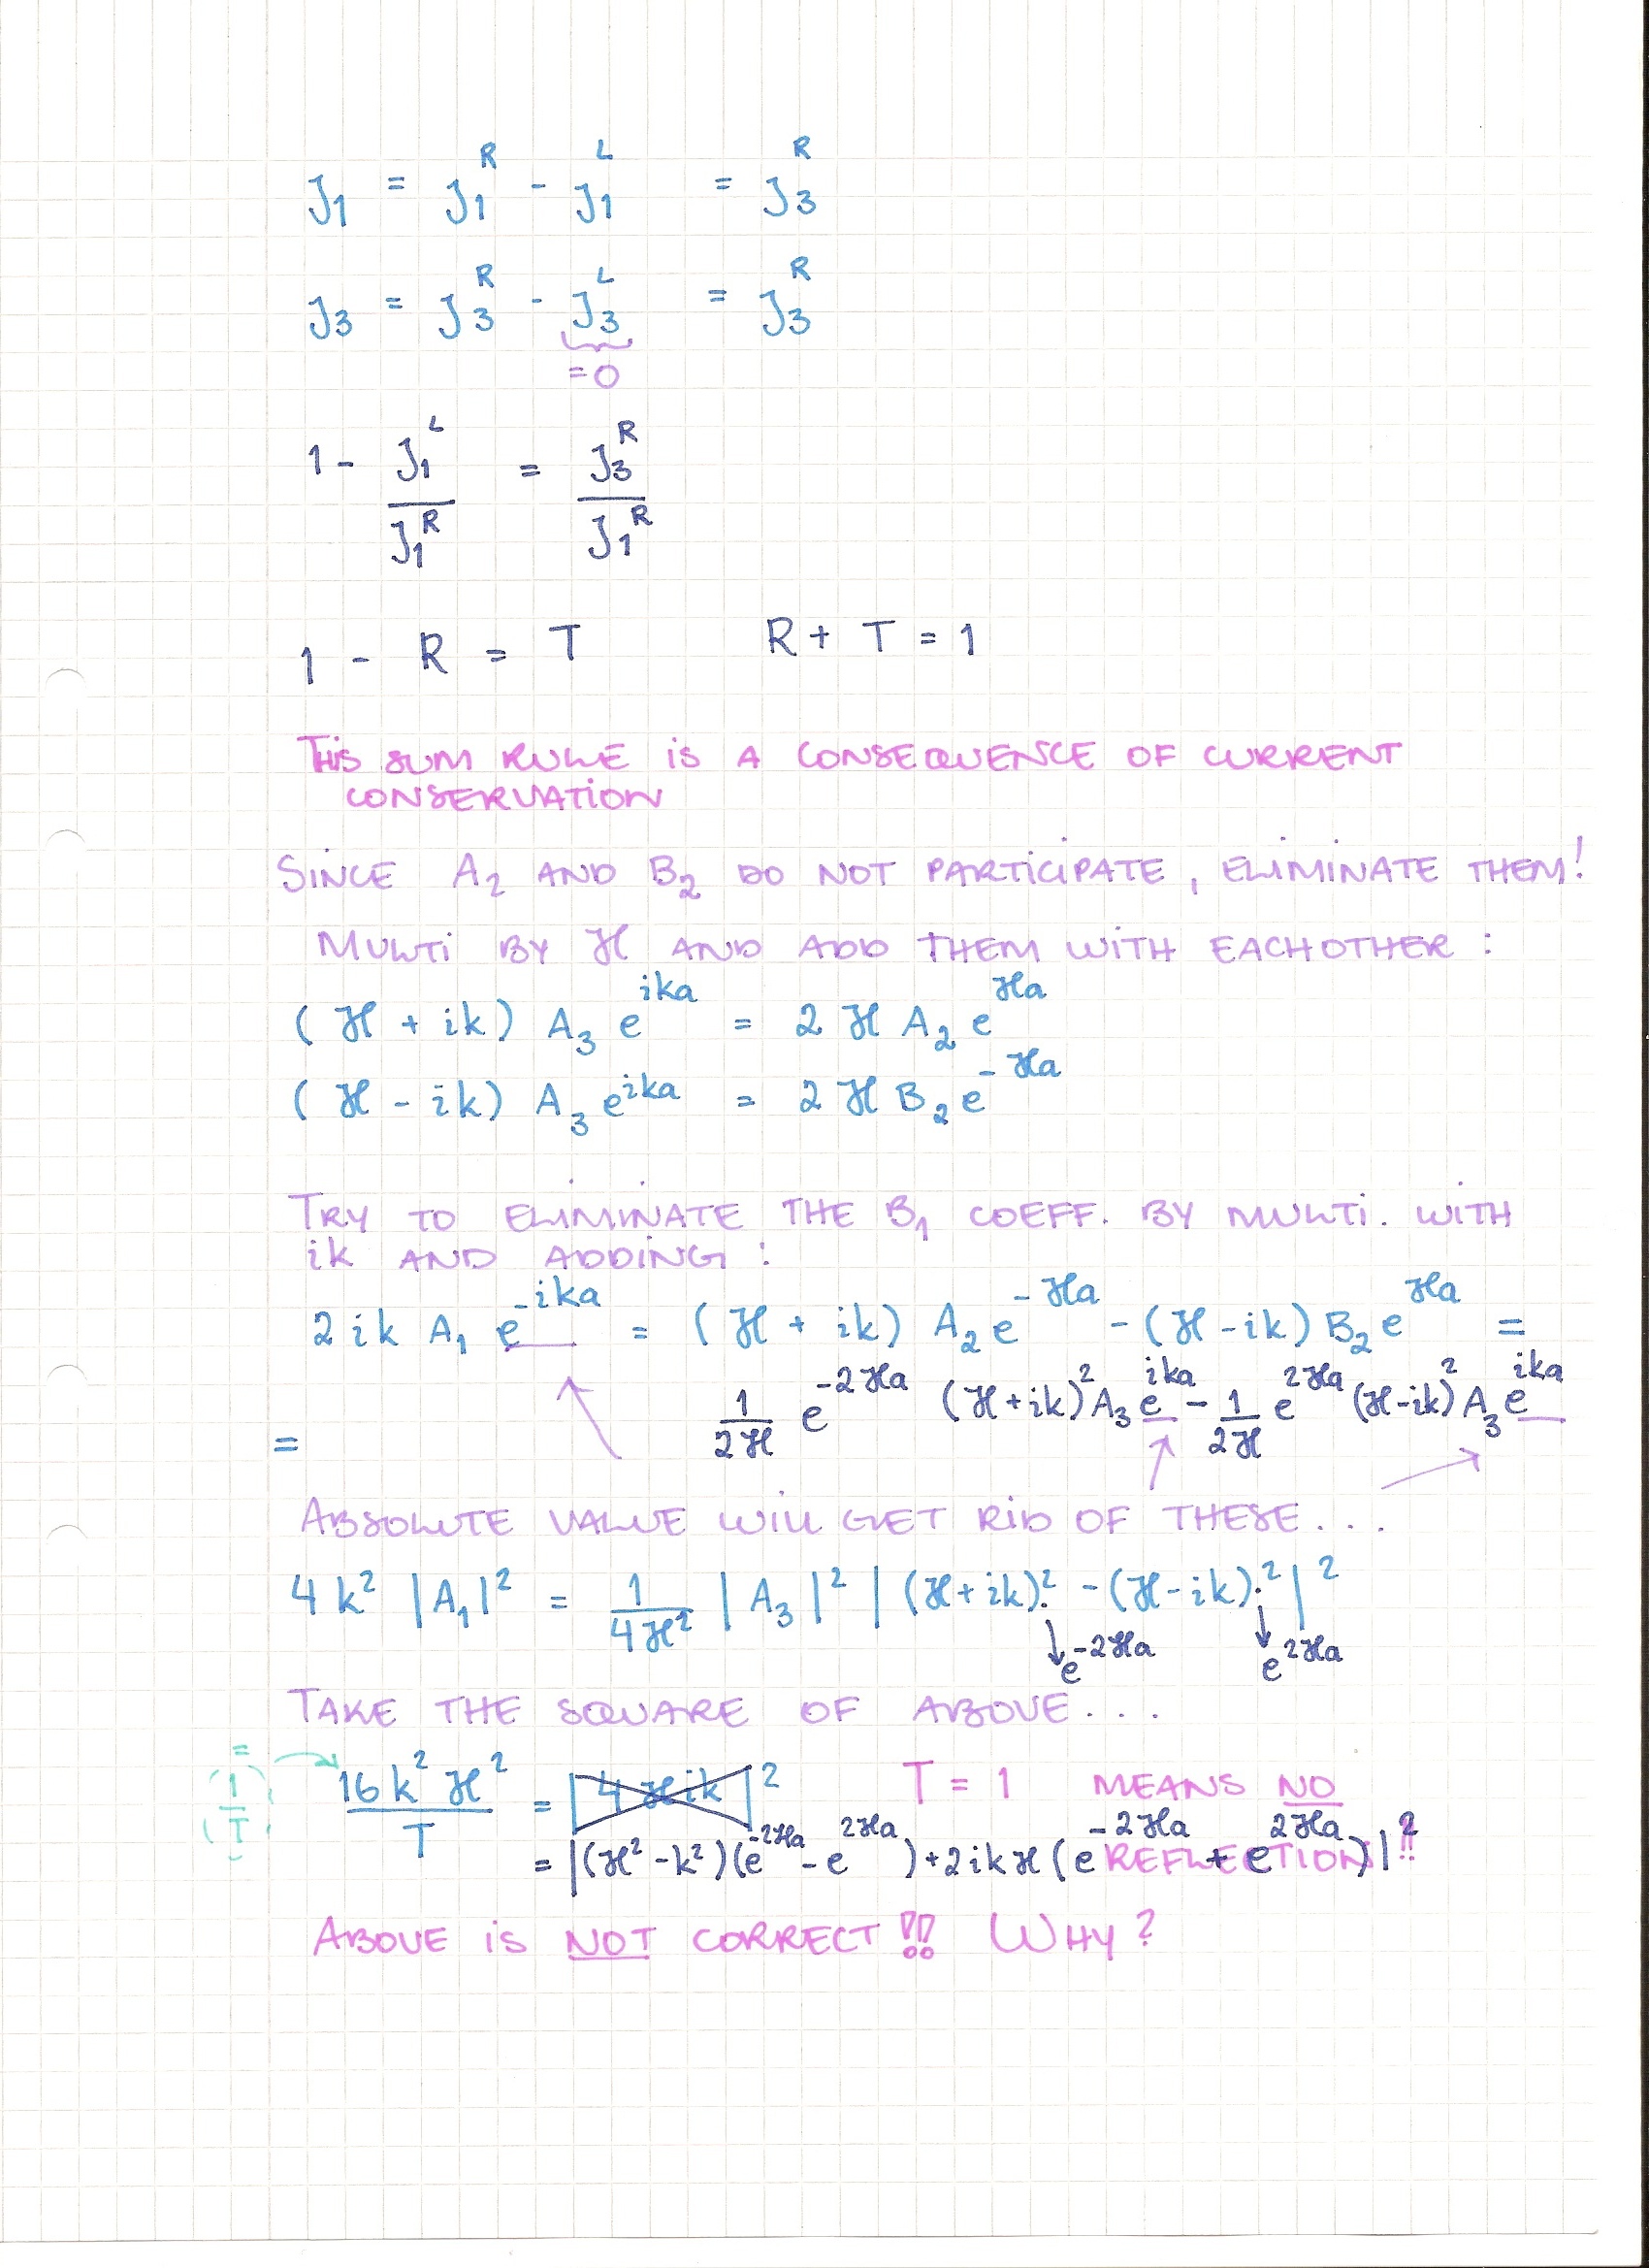 J₁ = J₁ᴿ - J₁ᴸ = J₃ᴿ
J₃ = J₃ᴿ - J₃ᴸ = J₃ᴿ
=0
1 - J₁ᴸ/J₁ᴿ = J₃ᴿ/J₁ᴿ
1 - R = T R + T = 1
THIS SUM RULE IS A CONSEQUENCE OF CURRENT
CONSERVATION
SINCE A₂ AND B₂ DO NOT PARTICIPATE, ELIMINATE THEM!
MULTI BY ϰ AND ADD THEM WITH EACHOTHER :
(ϰ + ik) A₃ e^{ika} = 2 ϰ A₂ e^{ϰa}
(ϰ - ik) A₃ e^{ika} = 2 ϰ B₂ e^{-ϰa}
TRY TO ELIMINATE THE B₁ COEFF. BY MULTI. WITH
ik AND ADDING :
2 ik A₁ e^{-ika} = (ϰ + ik) A₂ e^{-ϰa} - (ϰ - ik) B₂ e^{ϰa} =
= 1/2ϰ e^{-2ϰa} (ϰ + ik)² A₃ e^{ika} - 1/2ϰ e^{2ϰa} (ϰ - ik)² A₃ e^{ika}
ABSOLUTE VALUE WILL GET RID OF THESE...
4 k² |A₁|² = 1/4ϰ² |A₃|² | (ϰ + ik)² - (ϰ - ik)² |²
e^{-2ϰa} e^{2ϰa}
TAKE THE SQUARE OF ABOVE...
= (1/T) 16 k² ϰ²/T = |4 ϰ ik|² T = 1 MEANS NO
REFLECTION!!
= |(ϰ² - k²)(e^{-2ϰa} - e^{2ϰa}) + 2 ik ϰ (e^{-2ϰa} + e^{2ϰa})|²
ABOVE IS NOT CORRECT!! WHY?